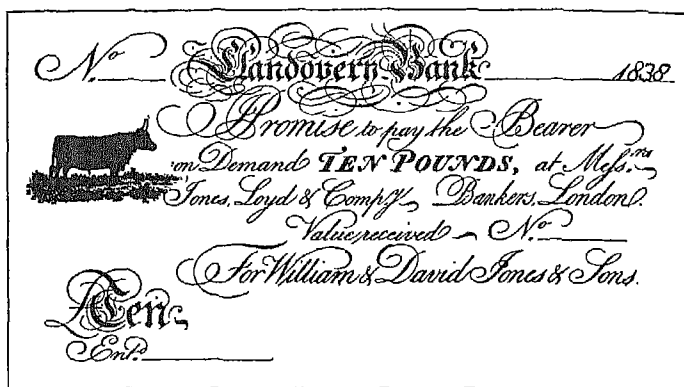 No. Llandovery Bank 1838
I Promise to pay the Bearer
on Demand TEN POUNDS, at Messrs.
Jones, Loyd & Compy. Bankers, London.
Value received No.
For William & David Jones & Sons.
£Ten
Entd.